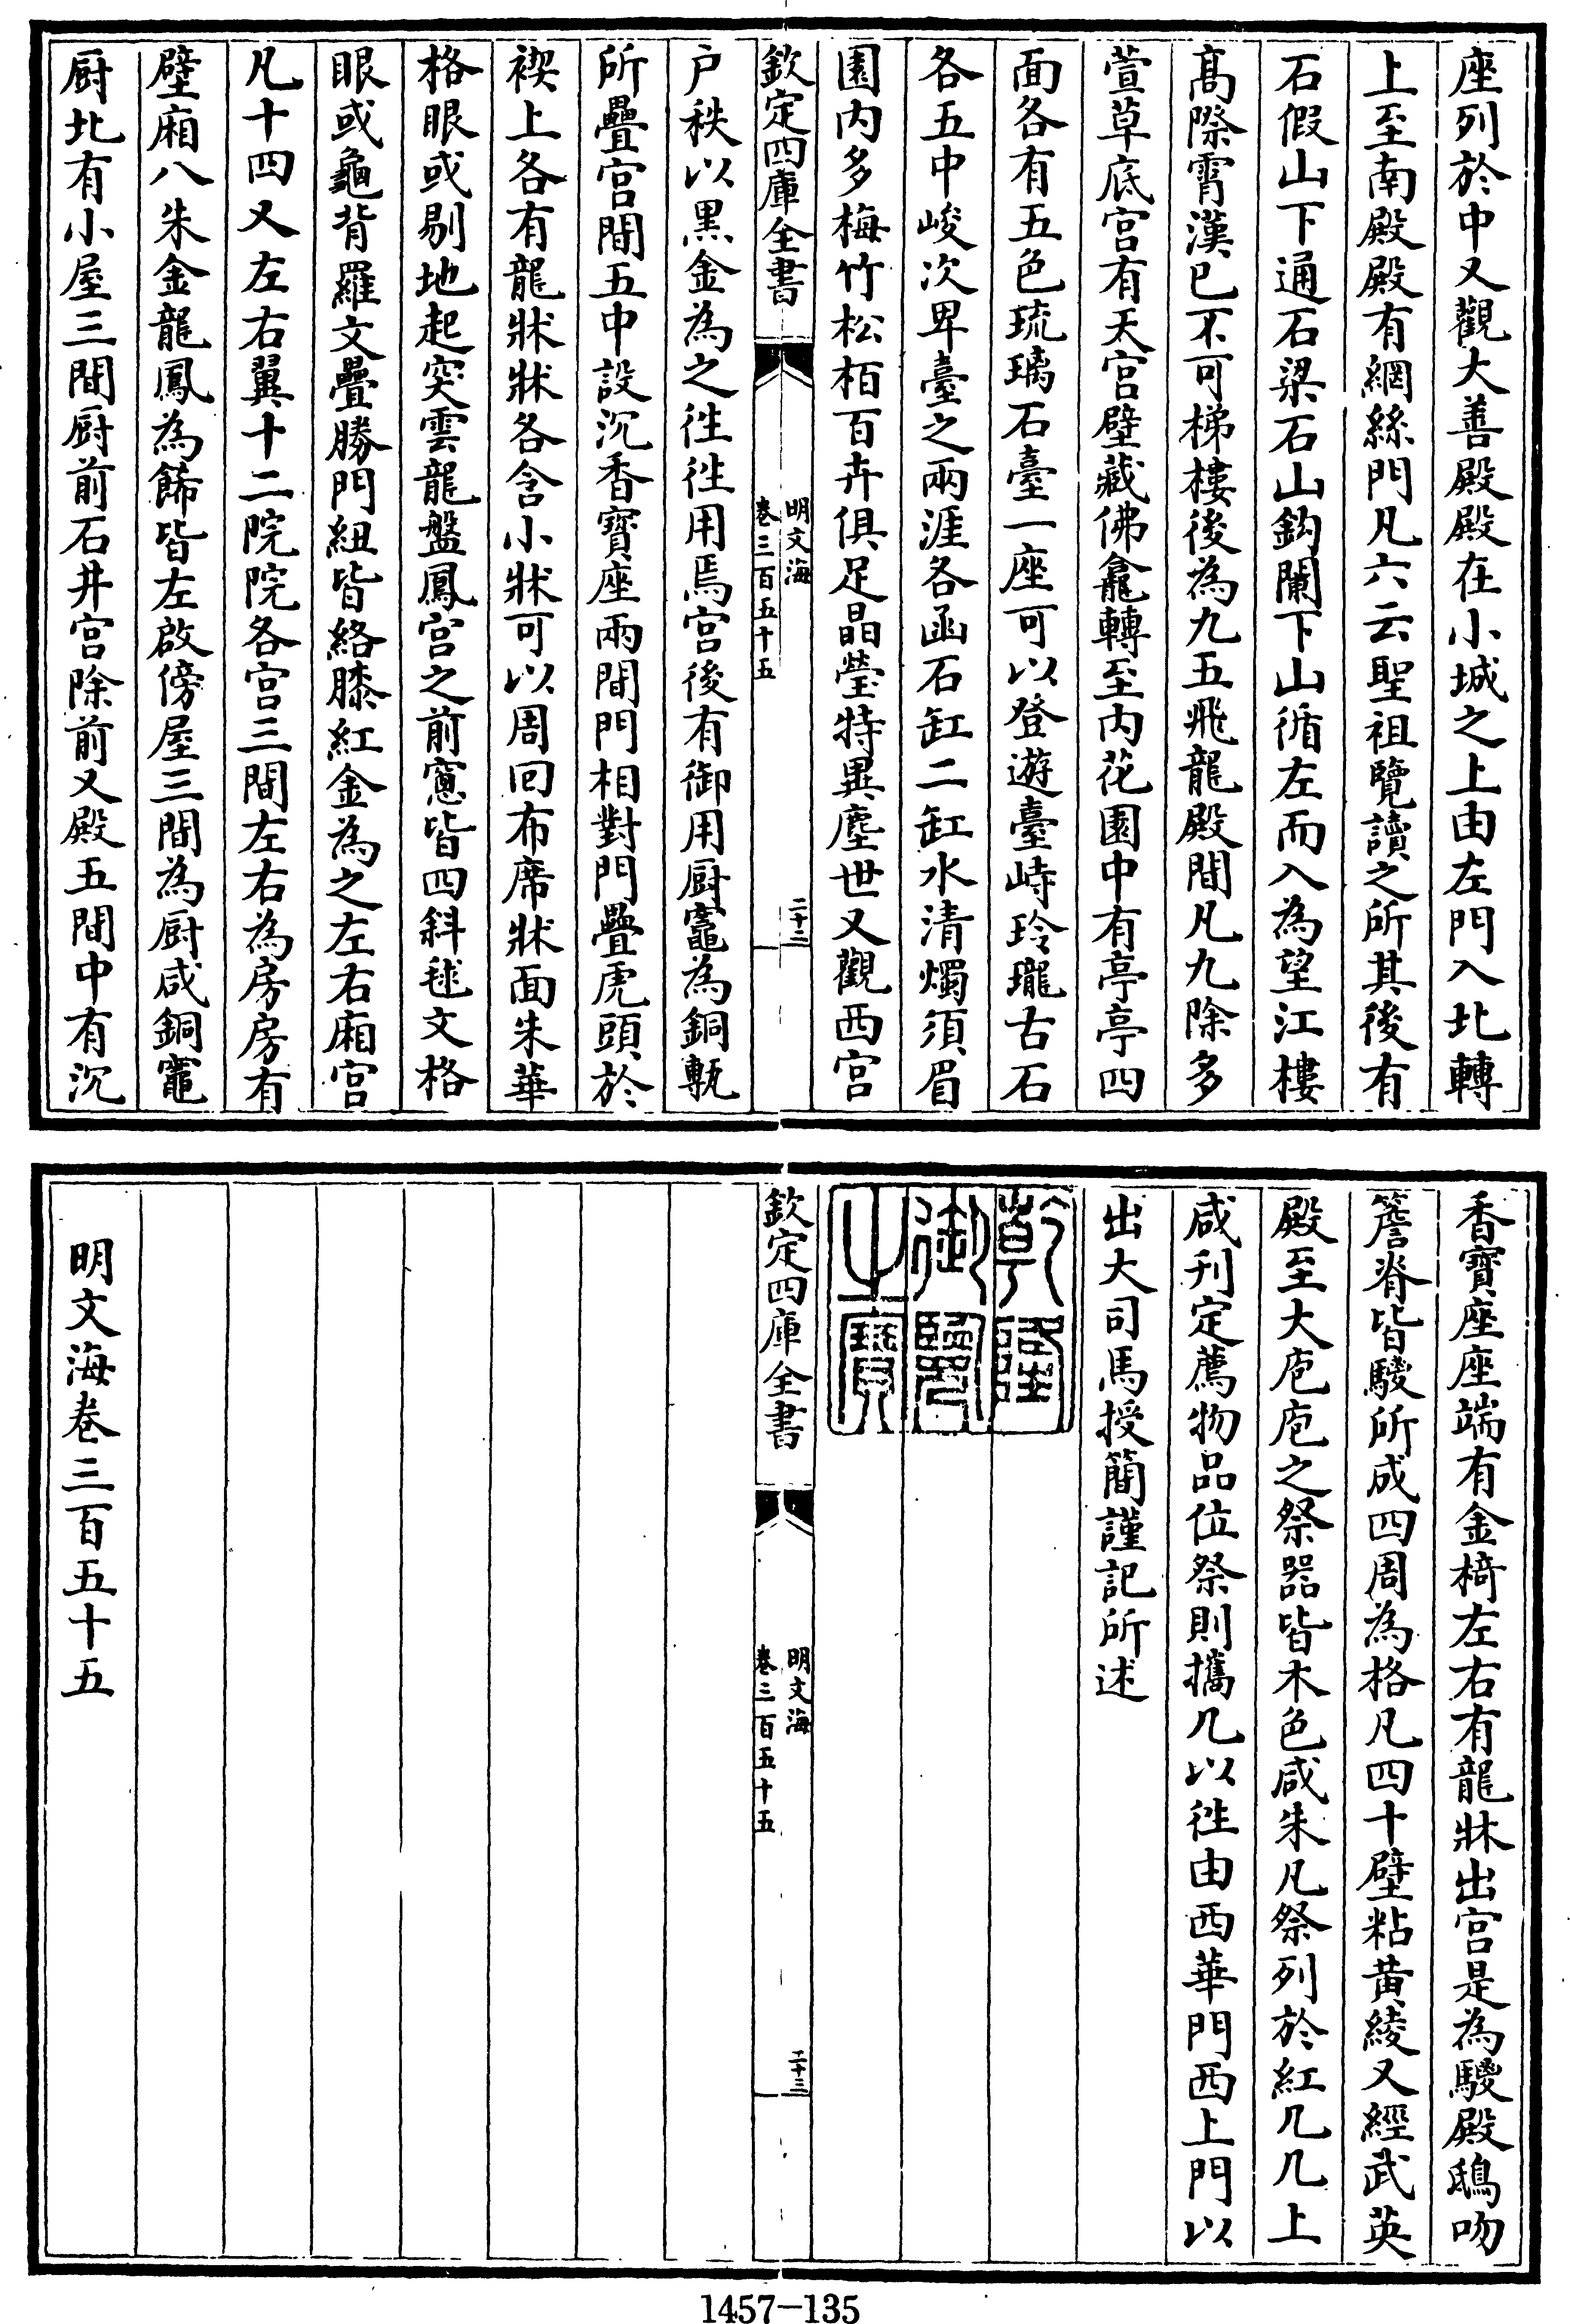 座列於中又觀大善殿殿在小城之上由左門入北轉
上至南殿殿有網絲門凡六云聖祖覽讀之所其後有
石假山下通石梁石山鈎闌下山循左而入為望江樓
髙際霄漢已不可梯樓後為九五飛龍殿間凡九除多
萱草底宫有天宫壁藏佛龕轉至内花園中有亭亭四
面各有五色琉璃石臺一座可以登遊臺峙玲瓏古石
各五中峻次卑臺之兩涯各函石缸二缸水清燭須眉
園内多梅竹松栢百卉俱足晶瑩特異塵世又觀西宫
欽定四庫全書
明文海
卷三百五十五
二十二
户秩以黒金為之徃徃用焉宫後有御用厨竈為銅甎
所疊宫間五中設沉香寳座兩間門相對門疊虎頭於
禊上各有龍牀牀各含小牀可以周回布席牀面朱華
格眼或剔地起突雲龍盤鳳宫之前窓皆四斜毬文格
眼或龜背羅文疊勝門紐皆絡膝紅金為之左右廂宫
凡十四又左右翼十二院院各宫三間左右為房房有
壁廂八朱金龍鳳為飾皆左啟傍屋三間為厨咸銅竈
厨北有小屋三間厨前石井宫除前又殿五間中有沉
香寳座座端有金椅左右有龍牀出宫是為騣殿鴟吻
簷脊皆騣所成四周為格凡四十壁粘黄綾又經武英
殿至大庖庖之祭器皆木色咸朱凡祭列於紅几几上
咸刋定薦物品位祭則攜几以徃由西華門西上門以
出大司馬授簡謹記所述
乾隆
御覽
之寶
欽定四庫全書
明文海
卷三百五十五
二十三
明文海卷三百五十五
1457—135